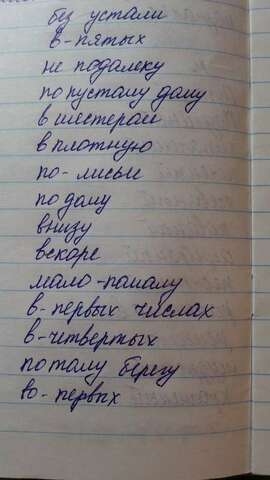 без устали
в-пятых
не подалеку
по пустому дому
в шестером
вплотную
по-лисьи
по дому
внизу
вскоре
мало-помалу
в-первых числах
в-четвертых
по тому берегу
во-первых